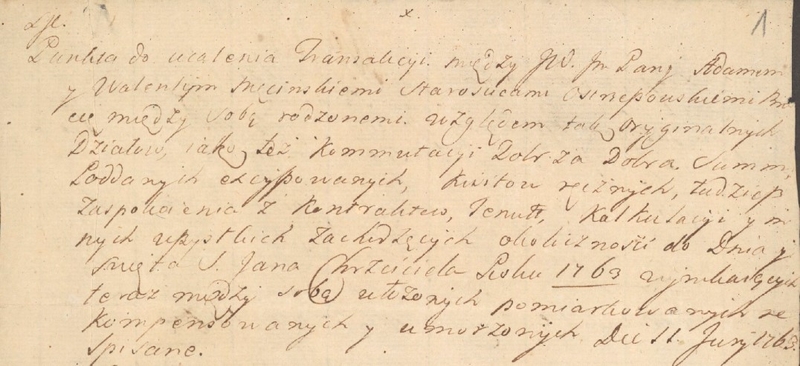 1
Punkta do ucalenia Transakcyi między JW. Jm Panj Adamem
y Walentym Męcinskiemi Starościcami Ostrzeszowskiemi Bra
cią między sobą rodzonemi. względem tak oryginalnych
Działow, iako też Kommutacyi Dobr za Dobra. Summ,
Poddanych excypowanych, Kwitow ręcznych, tudziesz
Zaspokoienia z Kontraktow, Tenutt, Kalkulacyi y in
nych wszystkich zachodzących okoliczność do Dnia y
święta S. Jana Chrzciciela Roku 1763 wynikaiących
teraz między sobą ułożonych pomiarkowanych re
kompensowanych y umorzonych Die 11 Junj 1763.
spisane.